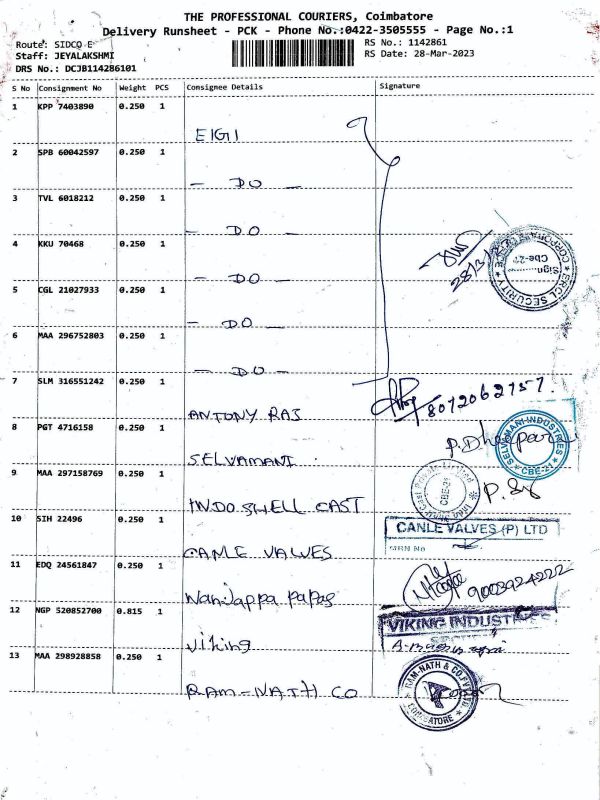 THE PROFESSIONAL COURIERS, Coimbatore
Delivery Runsheet - PCK - Phone No.:0422-3505555 - Page No.:1
Route: SIDCO E
Staff: JEYALAKSHMI
DRS No.: DCJB114286101
RS No.: 1142861
RS Date: 28-Mar-2023
S No Consignment No Weight PCS Consignee Details Signature
1 KPP 7403890 0.250 1
EIGI
2 SPB 60042597 0.250 1
- DO -
3 TVL 6018212 0.250 1
- DO -
4 KKU 70468 0.250 1
- DO -
28/3/
ERCL SECURITY
Sign
Cbe-21
5 CGL 21027933 0.250 1
- DO -
6 MAA 296752803 0.250 1
- DO -
7 SLM 316551242 0.250 1
ANTONY RAJ
8072062757.
8 PGT 4716158 0.250 1
SELVAMANI
SELVAMANI INDUSTRIES
CBE-21
9 MAA 297158769 0.250 1
INDO SHELL CAST
CBE-21
10 SIH 22496 0.250 1
CANLE VALVES
CANLE VALVES (P) LTD
GRN No
11 EDQ 24561847 0.250 1
Nanjappa papas
9003924222
12 NGP 520852700 0.815 1
Viking
VIKING INDUSTRIES
13 MAA 298928858 0.250 1
RAM-NATH CO
RAM-NATH & CO.PVT.LTD
COIMBATORE